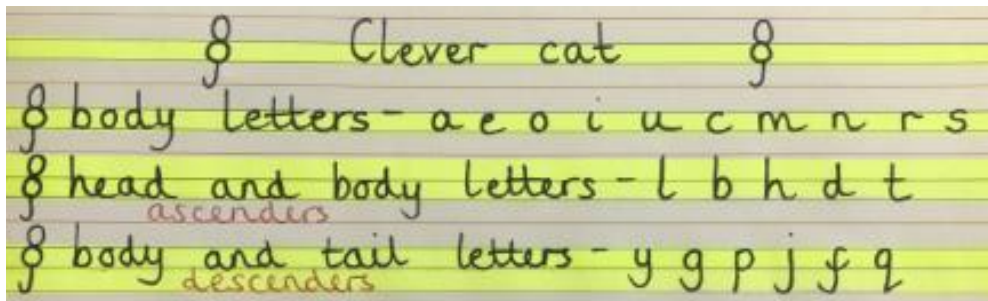 Clever cat
body letters - a e o i u c m n r s
head and body letters - l b h d t
ascenders
body and tail letters - y g p j f q
descenders